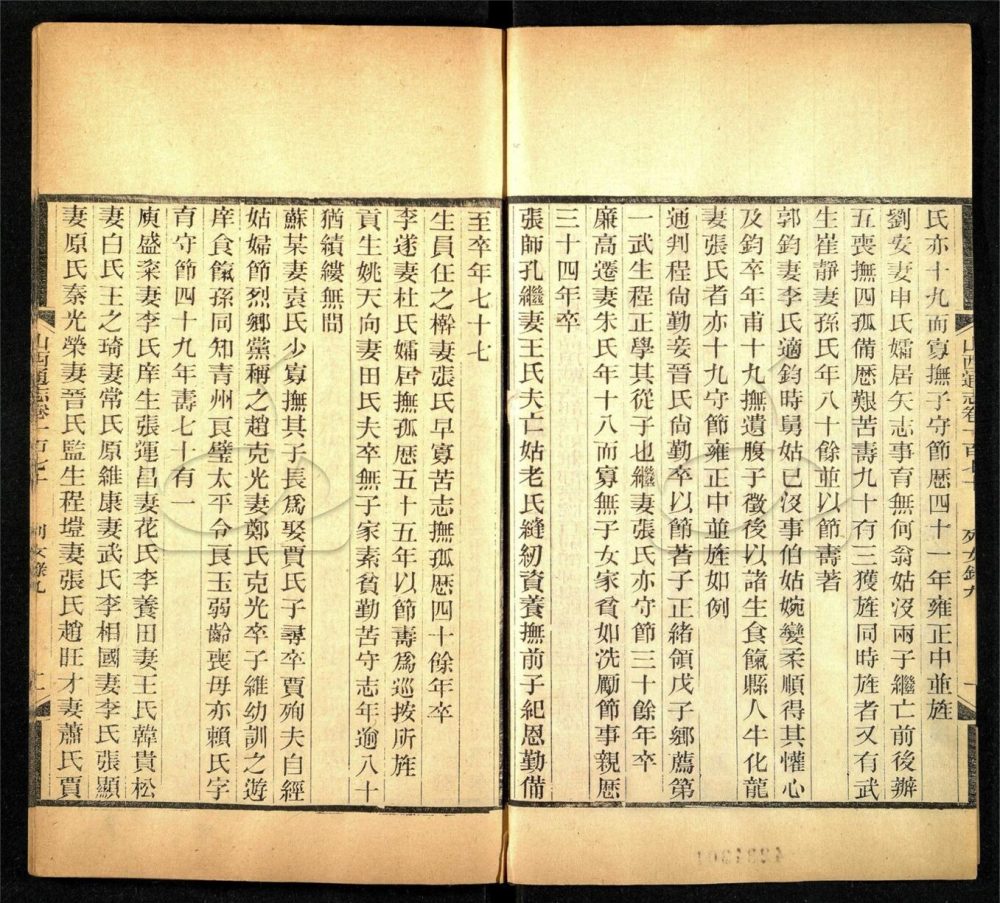 氏亦十九而寡撫子守節歷四十一年雍正中並旌
劉安妻申氏孀居矢志事育無何翁姑沒兩子繼亡前後辦
五喪撫四孤備歷艱苦壽九十有三獲旌同時旌者又有武
生崔靜妻孫氏年八十餘並以節壽著
郭鈞妻李氏適鈞時舅姑已沒事伯姑婉孌柔順得其懽心
及鈞卒年甫十九撫遺腹子徵後以諸生食餼縣人牛化龍
妻張氏者亦十九守節雍正中並旌如例
通判程尙勤妾晉氏尙勤卒以節著子正緖領戊子鄉薦第
一武生程正學其從子也繼妻張氏亦守節三十餘年卒
廉高遷妻朱氏年十八而寡無子女家貧如洗勵節事親歷
三十四年卒
張師孔繼妻王氏夫亡姑老氏縫紉資養撫前子紀恩勤備
至卒年七十七
生員任之榦妻張氏早寡苦志撫孤歷四十餘年卒
李遂妻杜氏孀居撫孤歷五十五年以節壽爲巡按所旌
貢生姚天向妻田氏夫卒無子家素貧勤苦守志年逾八十
猶績縷無間
蘇某妻袁氏少寡撫其子長爲娶賈氏子尋卒賈殉夫自經
姑婦節烈鄉黨稱之趙克光妻鄭氏克光卒子維幼訓之遊
庠食餼孫同知靑州㫰璧太平令㫰玉弱齡喪母亦賴氏字
育守節四十九年壽七十有一
庾盛粢妻李氏庠生張運昌妻花氏李養田妻王氏韓貴松
妻白氏王之琦妻常氏原維康妻武氏李相國妻李氏張顯
妻原氏秦光榮妻晉氏監生程壋妻張氏趙旺才妻蕭氏賈
山西通志卷一百七十 列女錄九 十一